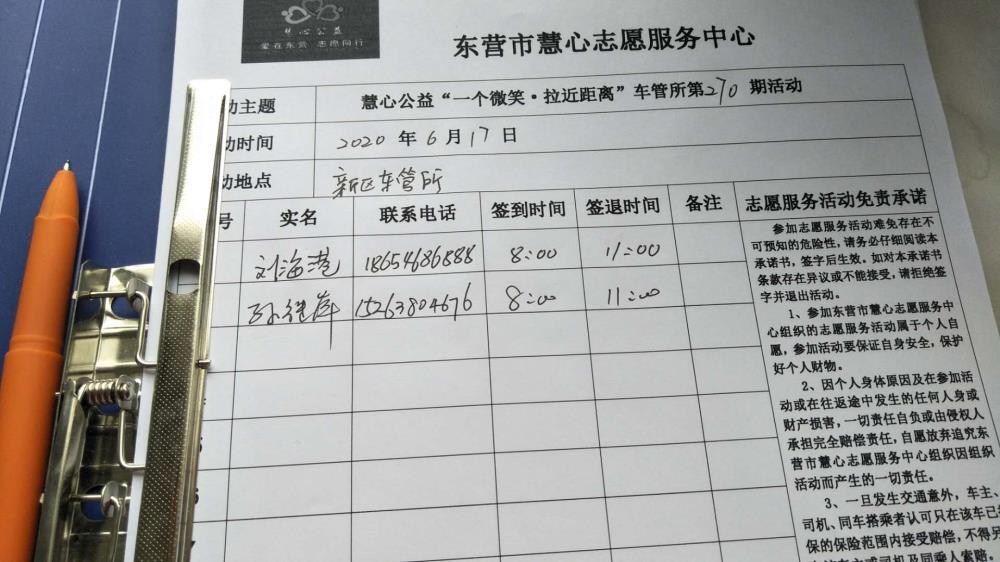 慧心公益
爱在东营 志愿同行
东营市慧心志愿服务中心
动主题 慧心公益“一个微笑·拉近距离”车管所第270期活动
动时间 2020 年 6 月 17 日
动地点 新区车管所
号 实名 联系电话 签到时间 签退时间 备注 志愿服务活动免责承诺
刘海港 18654686888 8:00 11:00
15263804676 8:00 11:00
参加志愿服务活动难免存在不
可预知的危险性，请务必仔细阅读本
承诺书，签字后生效。如对本承诺书
条款存在异议或不能接受，请拒绝签
字并退出活动。
1、参加东营市慧心志愿服务中
心组织的志愿服务活动属于个人自
愿，参加活动要保证自身安全，保护
好个人财物。
2、因个人身体原因及在参加活
动或在往返途中发生的任何人身或
财产损害，一切责任自负或由侵权人
承担完全赔偿责任，自愿放弃追究东
营市慧心志愿服务中心组织因组织
活动而产生的一切责任。
3、一旦发生交通意外，车主、
司机、同车搭乘者认可只在该车已
保的保险范围内接受赔偿，不得另
车主或司机及同乘人索赔。